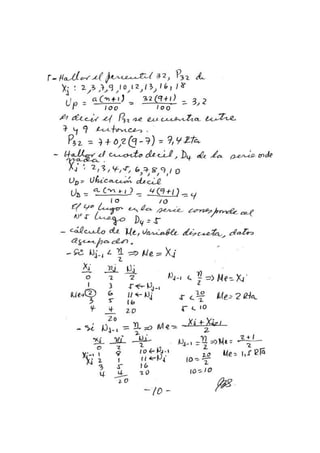 r-Hallar el percentil 32, P32 de
Xj : 2,3,7,9,10,12,13,16,18
Up = a(n+1)/100 = 32(9+1)/100 = 3,2
es decir el P32 se encuentra entre
7 y 9 entonces.
P32 = 7+0,2(9-7) = 7,4 Rta
- Hallar el cuarto decil, D4 de la serie orde
nada.
Xj : 2,3,4,5,6,7,8,9,10
UD = Ubicación decil
UD = a(n+1)/10 = 4(9+1)/10 = 4
El 4º lugar en la serie corresponde al
Nº 5 luego D4 = 5
- cálculo de Me, variable discreta, datos
agrupados.
- Si Nj-1 < n/2 ⇒ Me = Xj
Xj nj Nj
0 2 2 Nj-1 < n/2 ⇒ Me = Xj
1 3 5 ← Nj-1
Me=② 6 11 ← Nj 5 < 20/2 Me = 2 Rta
3 5 16 5 < 10
4 4 20
20
- Si Nj-1 = n/2 ⇒ Me = Xj + Xj-1/2
Xj nj Nj Nj-1 = n/2 ⇒ Me = 2+1/2
0 2 2
Xj-1 1 8 10 ← Nj-1
Xj 2 1 11 ← Nj 10 = 20/2 Me = 1,5 Rta
3 5 16 10 = 10
4 4 20
20
-10-